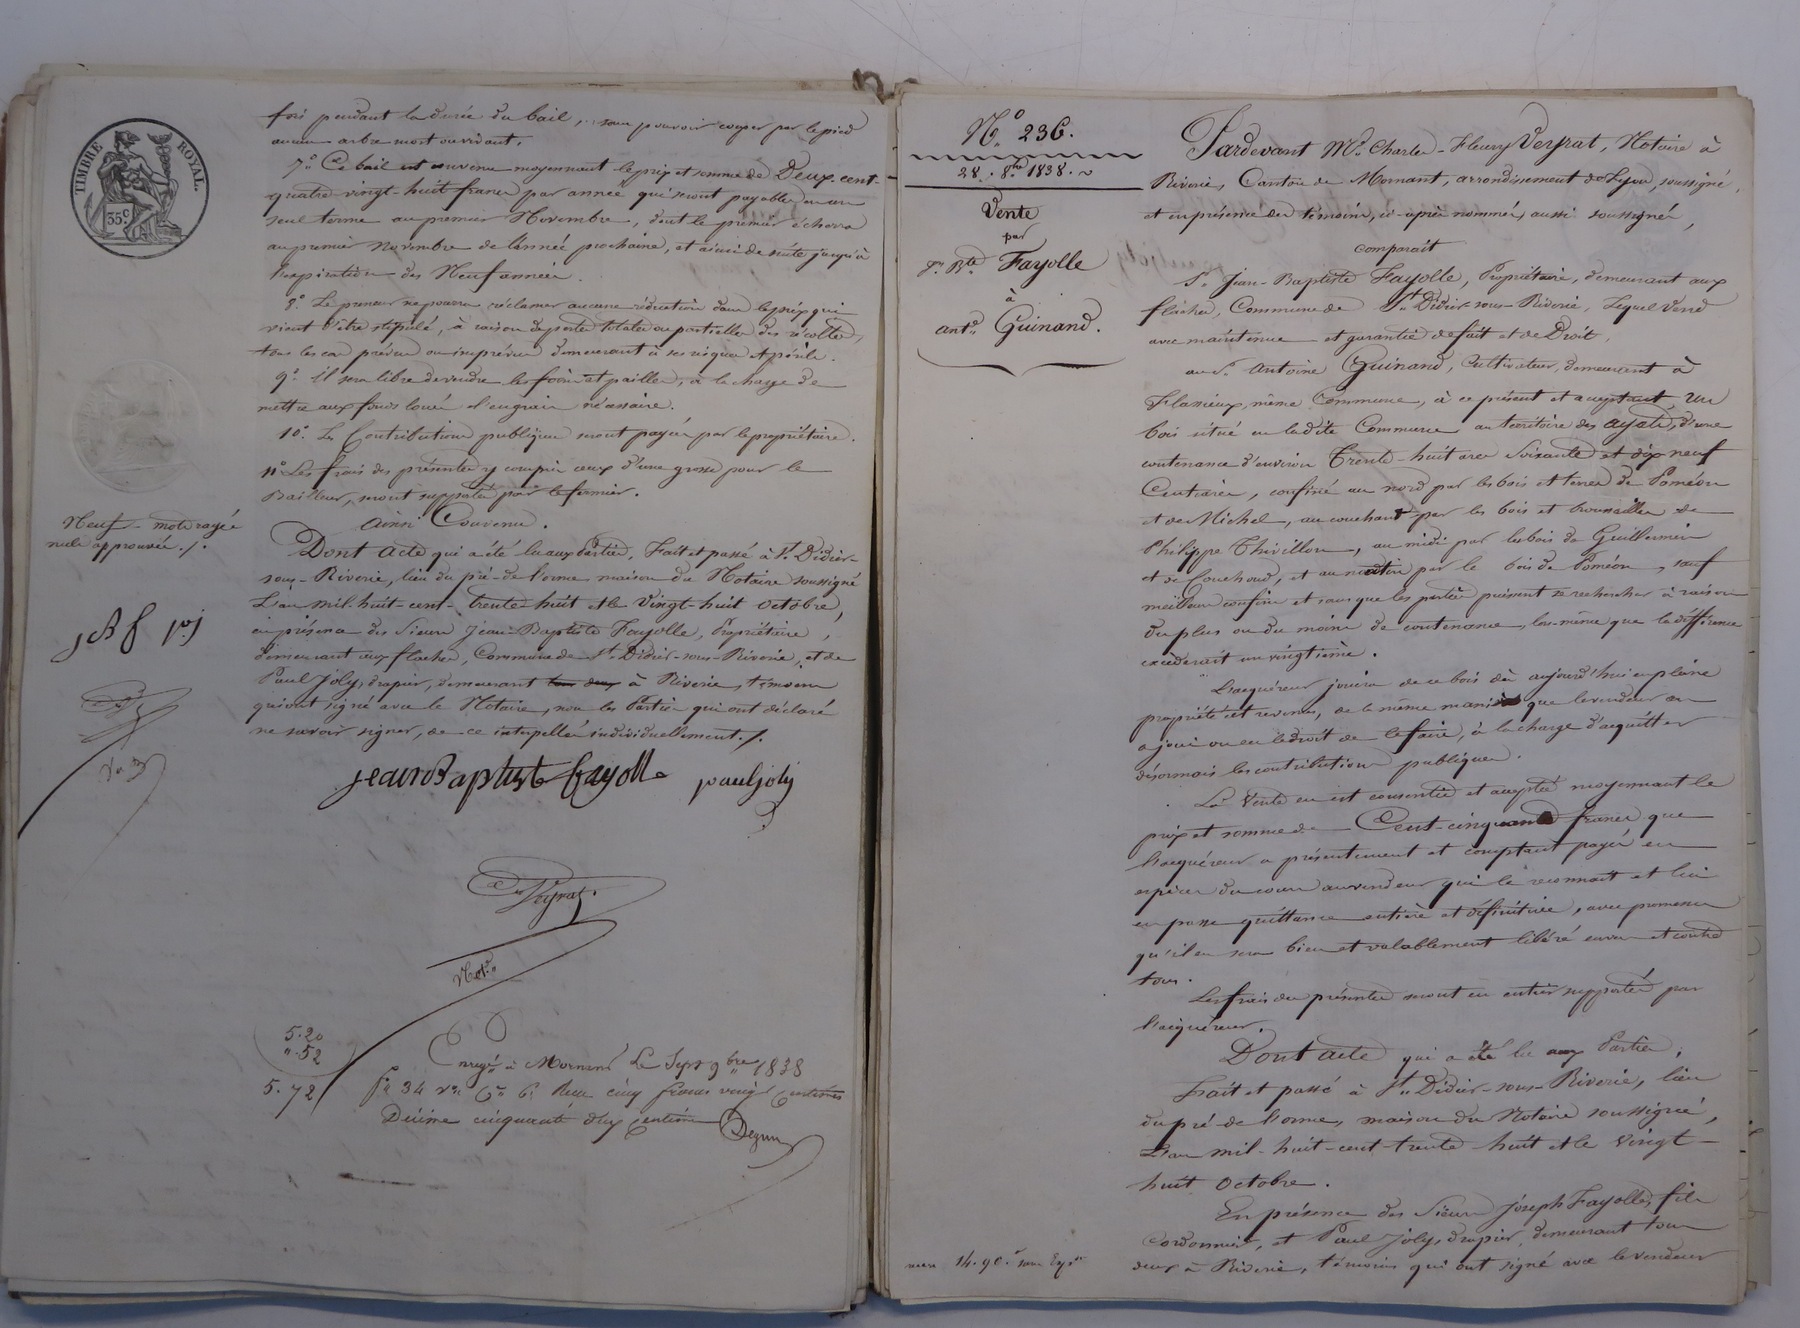 TIMBRE ROYAL.
35c
fois pendant la durée du bail, sans pouvoir couper par le pied
aucun arbre mort ou vivant.
7º. Ce bail est convenu moyennant le prix et somme de Deux-cent-
quatre-vingt-huit francs par année qui seront payables en un
seul terme au premier Novembre, dont le premier écherra
au premier Novembre de l'année prochaine, et ainsi de suite jusqu'à
l'expiration des Neuf années.
8º. Le preneur ne pourra réclamer aucune réduction dans le prix qui
vient d'être stipulé, à raison de perte totale ou partielle des récoltes,
tous les cas prévus ou imprévus demeurant à ses risques et périls.
9º. il sera libre de vendre les foins et pailles, à la charge de
mettre aux fonds loués l'engrais nécessaire.
10º. Les Contributions publiques seront payées par le propriétaire.
11º Les frais des présentes y compris ceux d'une grosse pour le
Bailleur, seront supportés par le fermier.
Ainsi Convenu.
Dont Acte qui a été lu aux Parties, Fait et passé à St. Didier-
sous-Riverie, lieu du pré-de l'orme, maison du Notaire soussigné
L'an mil-huit-cent-trente-huit et le Vingt-huit octobre,
en présence des Sieurs Jean-Baptiste Fayolle, Propriétaire,
demeurant aux flaches, Commune de St. Didier-sous-Riverie, et de
Paul Joly, drapier, demeurant tous deux à Riverie, témoins
qui ont signé avec le Notaire, non les Parties qui ont déclaré
ne savoir signer, de ce interpellées individuellement./.
Neuf mots rayés
nuls approuvés./.
jBf pj
jean Baptiste fayolle pauljoly
Veyrat
Not.re
5.20
".52
5.72
Enregé à Mornant Le Sept 9bre 1838
fº 34 vº Cº 6. Reçu cinq francs vingt Centimes
Décime cinquante deux Centimes
Nº. 236.
28. 8bre 1838.
Vente
par
Jn. Bte. Fayolle
à
antne. Guinand.
Pardevant Me. Charles-Fleury Veyrat, Notaire à
Riverie, Canton de Mornant, arrondissement de Lyon, soussigné,
et en présence des témoins, ci-après nommés, aussi soussignés,
comparait
Sr. Jean-Baptiste Fayolle, Propriétaire, demeurant aux
flaches, Commune de St. Didier-sous-Riverie, Lequel Vend
avec maintenue et garantie de fait et de Droit,
au Sr. Antoine Guinand, Cultivateur, demeurant à
Flassieux, même Commune, à ce présent et acceptant, un
bois situé en ladite Commune, au territoire des ayats, d'une
contenance d'environ Trente-huit ares Soixante et dix neuf
Centiares, confiné au nord par les bois et terres de Poméon
et de Michel, au couchant par les bois et broussailles de
Philippe Thivillon, au midi par les bois de Guillermin
et de Couchoud, et au matin par le bois de Poméon, sauf
meilleurs confins et sans que les parties puissent se rechercher à raison
du plus ou du moins de contenance, lors-même que la différence
excéderait un vingtième.
L'acquéreur jouira de ce bois dès aujourd'hui en pleine
propriété et revenus, de la même manière que le vendeur en
a joui ou eu le droit de le faire, à la charge d'acquitter
désormais les contributions publiques.
La Vente en est consentie et acceptée moyennant le
prix et somme de Cent-cinquante francs, que
l'acquéreur a présentement et comptant payés en
espèces du cours au vendeur qui le reconnait et lui
en passe quittance entière et définitive, avec promesse
qu'il en sera bien et valablement libéré envers et contre
tous.
Les frais des présentes seront en entier supportés par
l'acquéreur.
Dont acte qui a été lu aux Parties,
Fait et passé à St. Didier-sous-Riverie, lieu
du pré-de l'orme, maison du Notaire soussigné,
L'an mil-huit-cent-trente-huit et le Vingt-
huit Octobre.
En présence des Sieurs joseph Fayolle, fils
Cordonnier, et Paul Joly, drapier, demeurant tous
deux à Riverie, témoins qui ont signé avec le vendeur
14.90.